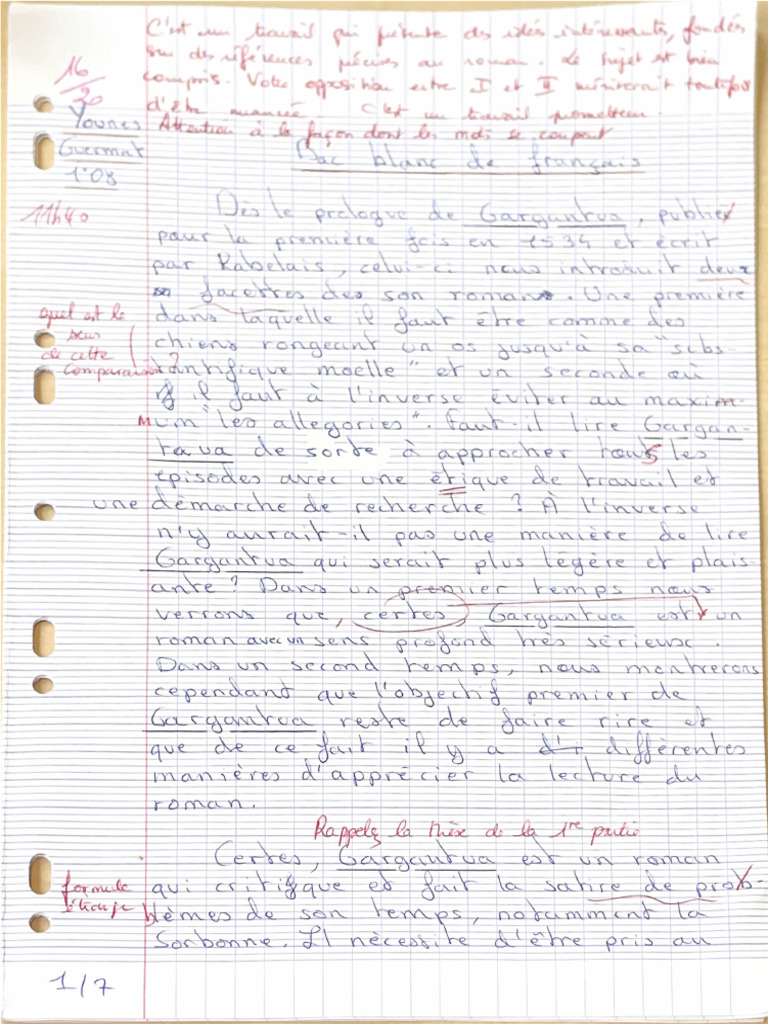 C'est un travail qui présente des idées intéressantes, fondés
sur des références précises au roman. Le sujet est bien
compris. Votre opposition entre I et II mériterait toutefois
d'être nuancée. C'est un travail prometteur.
Attention à la façon dont les mots se coupent
16/20
Younes
Guermat
1°08
Bac blanc de français
11h40
Dès le prologue de Gargantua, publier
pour la première fois en 1534 et écrit
par Rabelais, celui-ci nous introduit deux
facettes des son roman. Une première
dans laquelle il faut être comme des
chiens rongeant un os jusqu'à sa "subs-
tantifique moelle" et un seconde où
il faut à l'inverse éviter au maxim-
mum "les allegories". Faut-il lire Gargan-
taua de sorte à approcher tous les
épisodes avec une étique de travail et
une démarche de recherche ? À l'inverse
n'y aurait-il pas une manière de lire
Gargantua qui serait plus légère et plais-
ante ? Dans un premier temps nous
verrons que, certes, Gargantua est un
roman avec un sens profond très sérieux.
Dans un second temps, nous montrerons
cependant que l'objectif premier de
Gargantua reste de faire rire et
que de ce fait il y a différentes
manières d'apprécier la lecture du
roman.
quel est le
sens
de cette
comparaison ?
Rappelez la thèse de la 1re partie
Certes, Gargantua est un roman
qui critique et fait la satire de prob-
blèmes de son temps, notamment la
Sorbonne. Il nécessite d'être pris au
formule
étrange
1/7